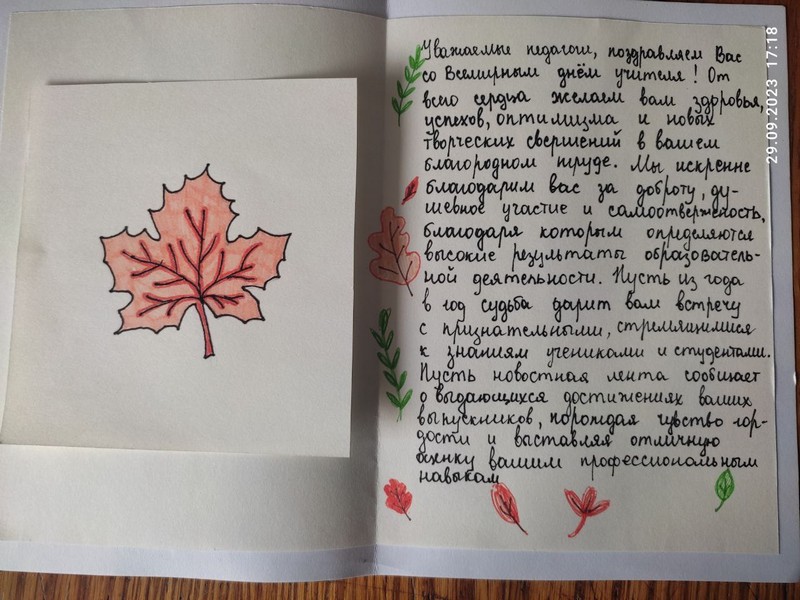 Уважаемые педагоги, поздравляем Вас
со Всемирным днём учителя! От
всего сердца желаем вам здоровья,
успехов, оптимизма и новых
творческих свершений в вашем
благородном труде. Мы искренне
благодарим вас за доброту, ду-
шевное участие и самоотверженость,
благодаря которым определяются
высокие результаты образователь-
ной деятельности. Пусть из года
в год судьба дарит вам встречу
с признательными, стремящимися
к знаниям учениками и студентами.
Пусть новостная лента сообщает
о выдающихся достижениях ваших
выпускников, порождая чувство гор-
дости и выставляя отличную
оценку вашим профессиональным
навыкам
29.09.2023 17:18